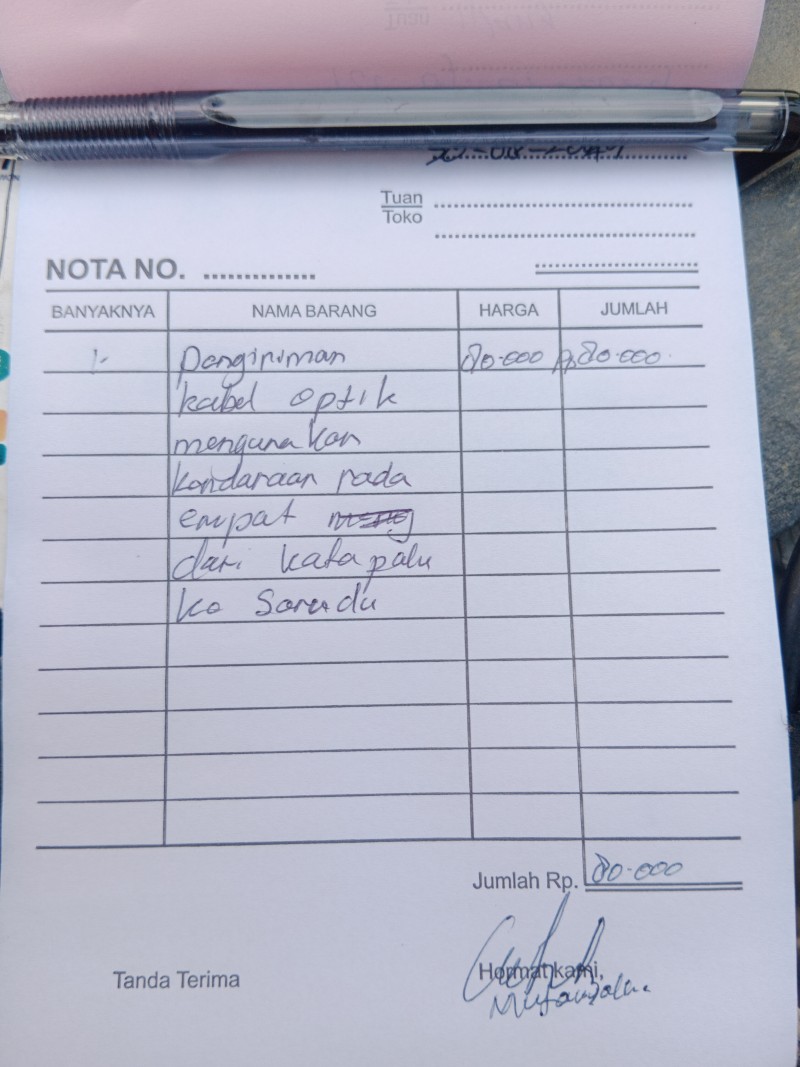 Tuan
Toko
NOTA NO. ..............
BANYAKNYA NAMA BARANG HARGA JUMLAH
1. Pengiriman 80.000 Rp 80.000.
kabel optik
mengunakan
kandaraan roda
empat
dari kota palu
ke Sarudu
Jumlah Rp. 80.000
Tanda Terima Hormat kami,